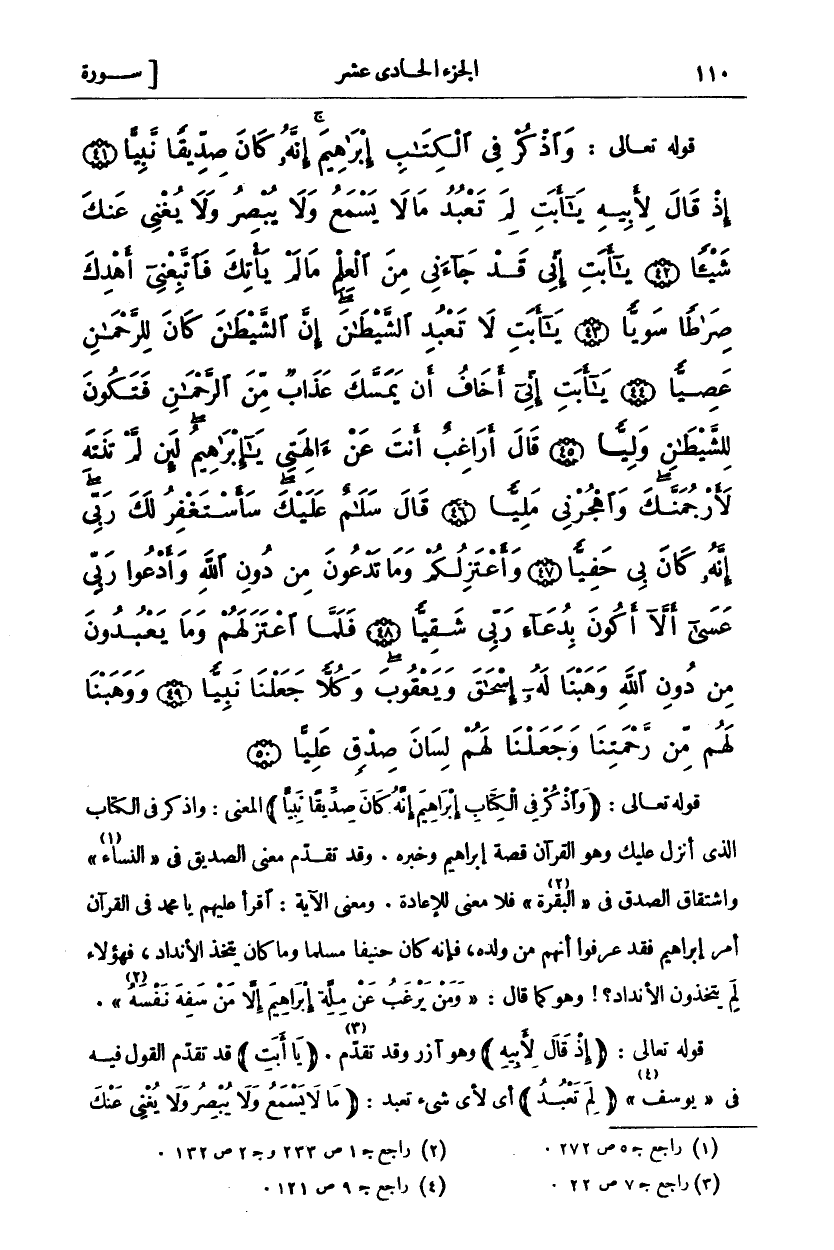 ١١٠ الجزء الحادى عشر [ سورة
قوله تعالى : وَٱذْكُرْ فِى ٱلْكِتَـٰبِ إِبْرَٰهِيمَ ۚ إِنَّهُۥ كَانَ صِدِّيقًا نَّبِيًّا ﴿٤١﴾
إِذْ قَالَ لِأَبِيهِ يَـٰٓأَبَتِ لِمَ تَعْبُدُ مَا لَا يَسْمَعُ وَلَا يُبْصِرُ وَلَا يُغْنِى عَنكَ
شَيْـًٔا ﴿٤٢﴾ يَـٰٓأَبَتِ إِنِّى قَدْ جَآءَنِى مِنَ ٱلْعِلْمِ مَا لَمْ يَأْتِكَ فَٱتَّبِعْنِىٓ أَهْدِكَ
صِرَٰطًا سَوِيًّا ﴿٤٣﴾ يَـٰٓأَبَتِ لَا تَعْبُدِ ٱلشَّيْطَـٰنَ ۖ إِنَّ ٱلشَّيْطَـٰنَ كَانَ لِلرَّحْمَـٰنِ
عَصِيًّا ﴿٤٤﴾ يَـٰٓأَبَتِ إِنِّىٓ أَخَافُ أَن يَمَسَّكَ عَذَابٌ مِّنَ ٱلرَّحْمَـٰنِ فَتَكُونَ
لِلشَّيْطَـٰنِ وَلِيًّا ﴿٤٥﴾ قَالَ أَرَاغِبٌ أَنتَ عَنْ ءَالِهَتِى يَـٰٓإِبْرَٰهِيمُ ۖ لَئِن لَّمْ تَنتَهِ
لَأَرْجُمَنَّكَ ۖ وَٱهْجُرْنِى مَلِيًّا ﴿٤٦﴾ قَالَ سَلَـٰمٌ عَلَيْكَ ۖ سَأَسْتَغْفِرُ لَكَ رَبِّىٓ ۖ
إِنَّهُۥ كَانَ بِى حَفِيًّا ﴿٤٧﴾ وَأَعْتَزِلُكُمْ وَمَا تَدْعُونَ مِن دُونِ ٱللَّهِ وَأَدْعُوا رَبِّى
عَسَىٰٓ أَلَّآ أَكُونَ بِدُعَآءِ رَبِّى شَقِيًّا ﴿٤٨﴾ فَلَمَّا ٱعْتَزَلَهُمْ وَمَا يَعْبُدُونَ
مِن دُونِ ٱللَّهِ وَهَبْنَا لَهُۥٓ إِسْحَـٰقَ وَيَعْقُوبَ ۖ وَكُلًّا جَعَلْنَا نَبِيًّا ﴿٤٩﴾ وَوَهَبْنَا
لَهُم مِّن رَّحْمَتِنَا وَجَعَلْنَا لَهُمْ لِسَانَ صِدْقٍ عَلِيًّا ﴿٥٠﴾
قوله تعالى : ﴿ وَٱذْكُرْ فِى ٱلْكِتَابِ إِبْرَاهِيمَ إِنَّهُ كَانَ صِدِّيقًا نَبِيًّا ﴾ المعنى : واذكر فى الكتاب
الذى أنزل عليك وهو القرآن قصة إبراهيم وخبره . وقد تقدّم معنى الصديق فى « النساء » (١)
واشتقاق الصدق فى « البقرة » (٢) فلا معنى للإعادة . ومعنى الآية : آقرأ عليهم يا محمد فى القرآن
أمر إبراهيم فقد عرفوا أنهم من ولده، فإنه كان حنيفا مسلما وما كان يتخذ الأنداد ، فهؤلاء
لِمَ يتخذون الأنداد؟! وهو كما قال : « وَمَنْ يَرْغَبُ عَنْ مِلَّةِ إِبْرَاهِيمَ إِلَّا مَنْ سَفِهَ نَفْسَهُ » (٢) .
قوله تعالى : ﴿ إِذْ قَالَ لِأَبِيهِ ﴾ وهو آزر وقد تقدّم (٣) . ﴿ يَا أَبَتِ ﴾ قد تقدّم القول فيه
فى « يوسف » (٤) ﴿ لِمَ تَعْبُدُ ﴾ أى لأى شىء تعبد : ﴿ مَا لَا يَسْمَعُ وَلَا يُبْصِرُ وَلَا يُغْنِى عَنْكَ
(١) راجع جـ ٥ ص ٢٧٢ . (٢) راجع جـ ١ ص ٢٣٣ و جـ ٢ ص ١٣٢ .
(٣) راجع جـ ٧ ص ٢٢ . (٤) راجع جـ ٩ ص ١٢١ .